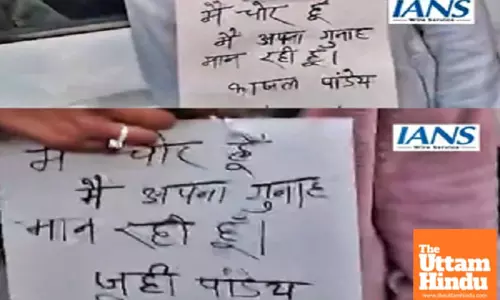 मै चोर हूँ
IANS
Wire Service
मै अपना गुनाह
मान रही हूँ।
काजल पांडेय
मै चोर हूँ
IANS
Wire Service
मै अपना गुनाह
मान रही हूँ।
जूही पांडेय
The
Uttam
Hindu